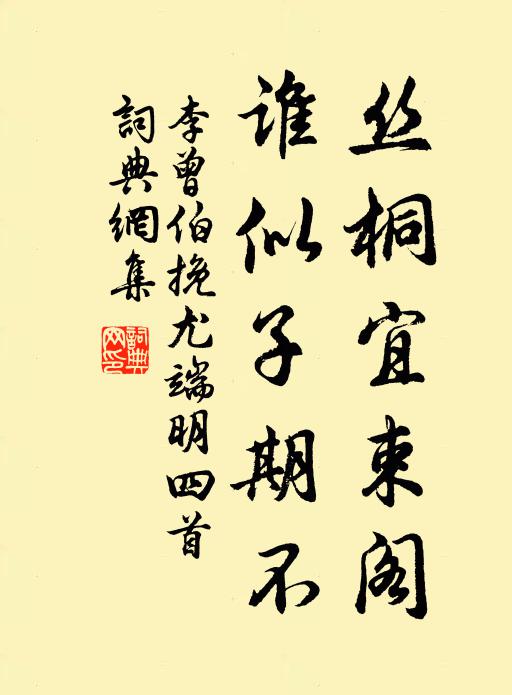 丝桐宜束阁
谁似子期不
李曾伯挽尤端明四首
詞典網集
詞典網印